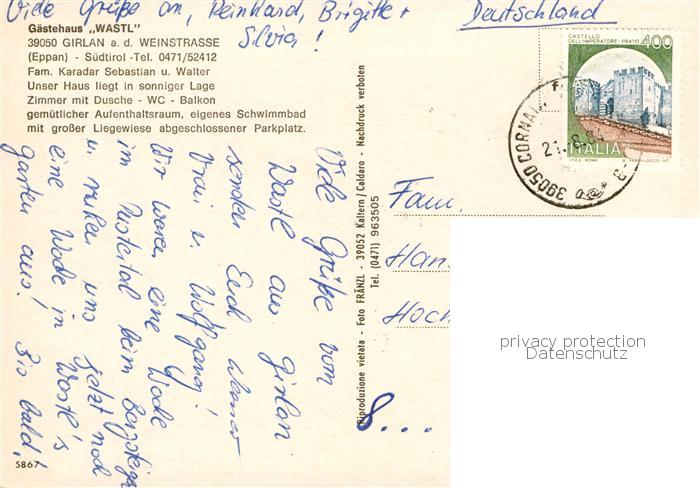 Viele Grüße an, Reinhard, Brigitte +
Silvia!
Deutschland
Gästehaus „WASTL"
39050 GIRLAN a. d. WEINSTRASSE
(Eppan) - Südtirol -Tel. 0471/52412
Fam. Karadar Sebastian u. Walter
Unser Haus liegt in sonniger Lage
Zimmer mit Dusche - WC - Balkon
gemütlicher Aufenthaltsraum, eigenes Schwimmbad
mit großer Liegewiese abgeschlossener Parkplatz.
Viele Grüße vom
Wastl aus Girlan
senden Euch Werner
Vroni u. Wolfgang!
Wir waren eine Woche
im Pustertal beim Bergsteigen
u. ruhen uns jetzt noch
eine Woche in Wastl's
garten aus! Bis bald!
5867
Riproduzione vietata - Foto FRÄNZL - 39052 Kaltern/Caldaro - Nachdruck verboten
Tel. (0471) 963505
CASTELLO
DELL'IMPERATORE - PRATO
400
ITALIA
I.P.Z.S. ROMA
39050 CORNAI
21.8.
Fam.
Han
Hoch
8....
privacy protection
Datenschutz